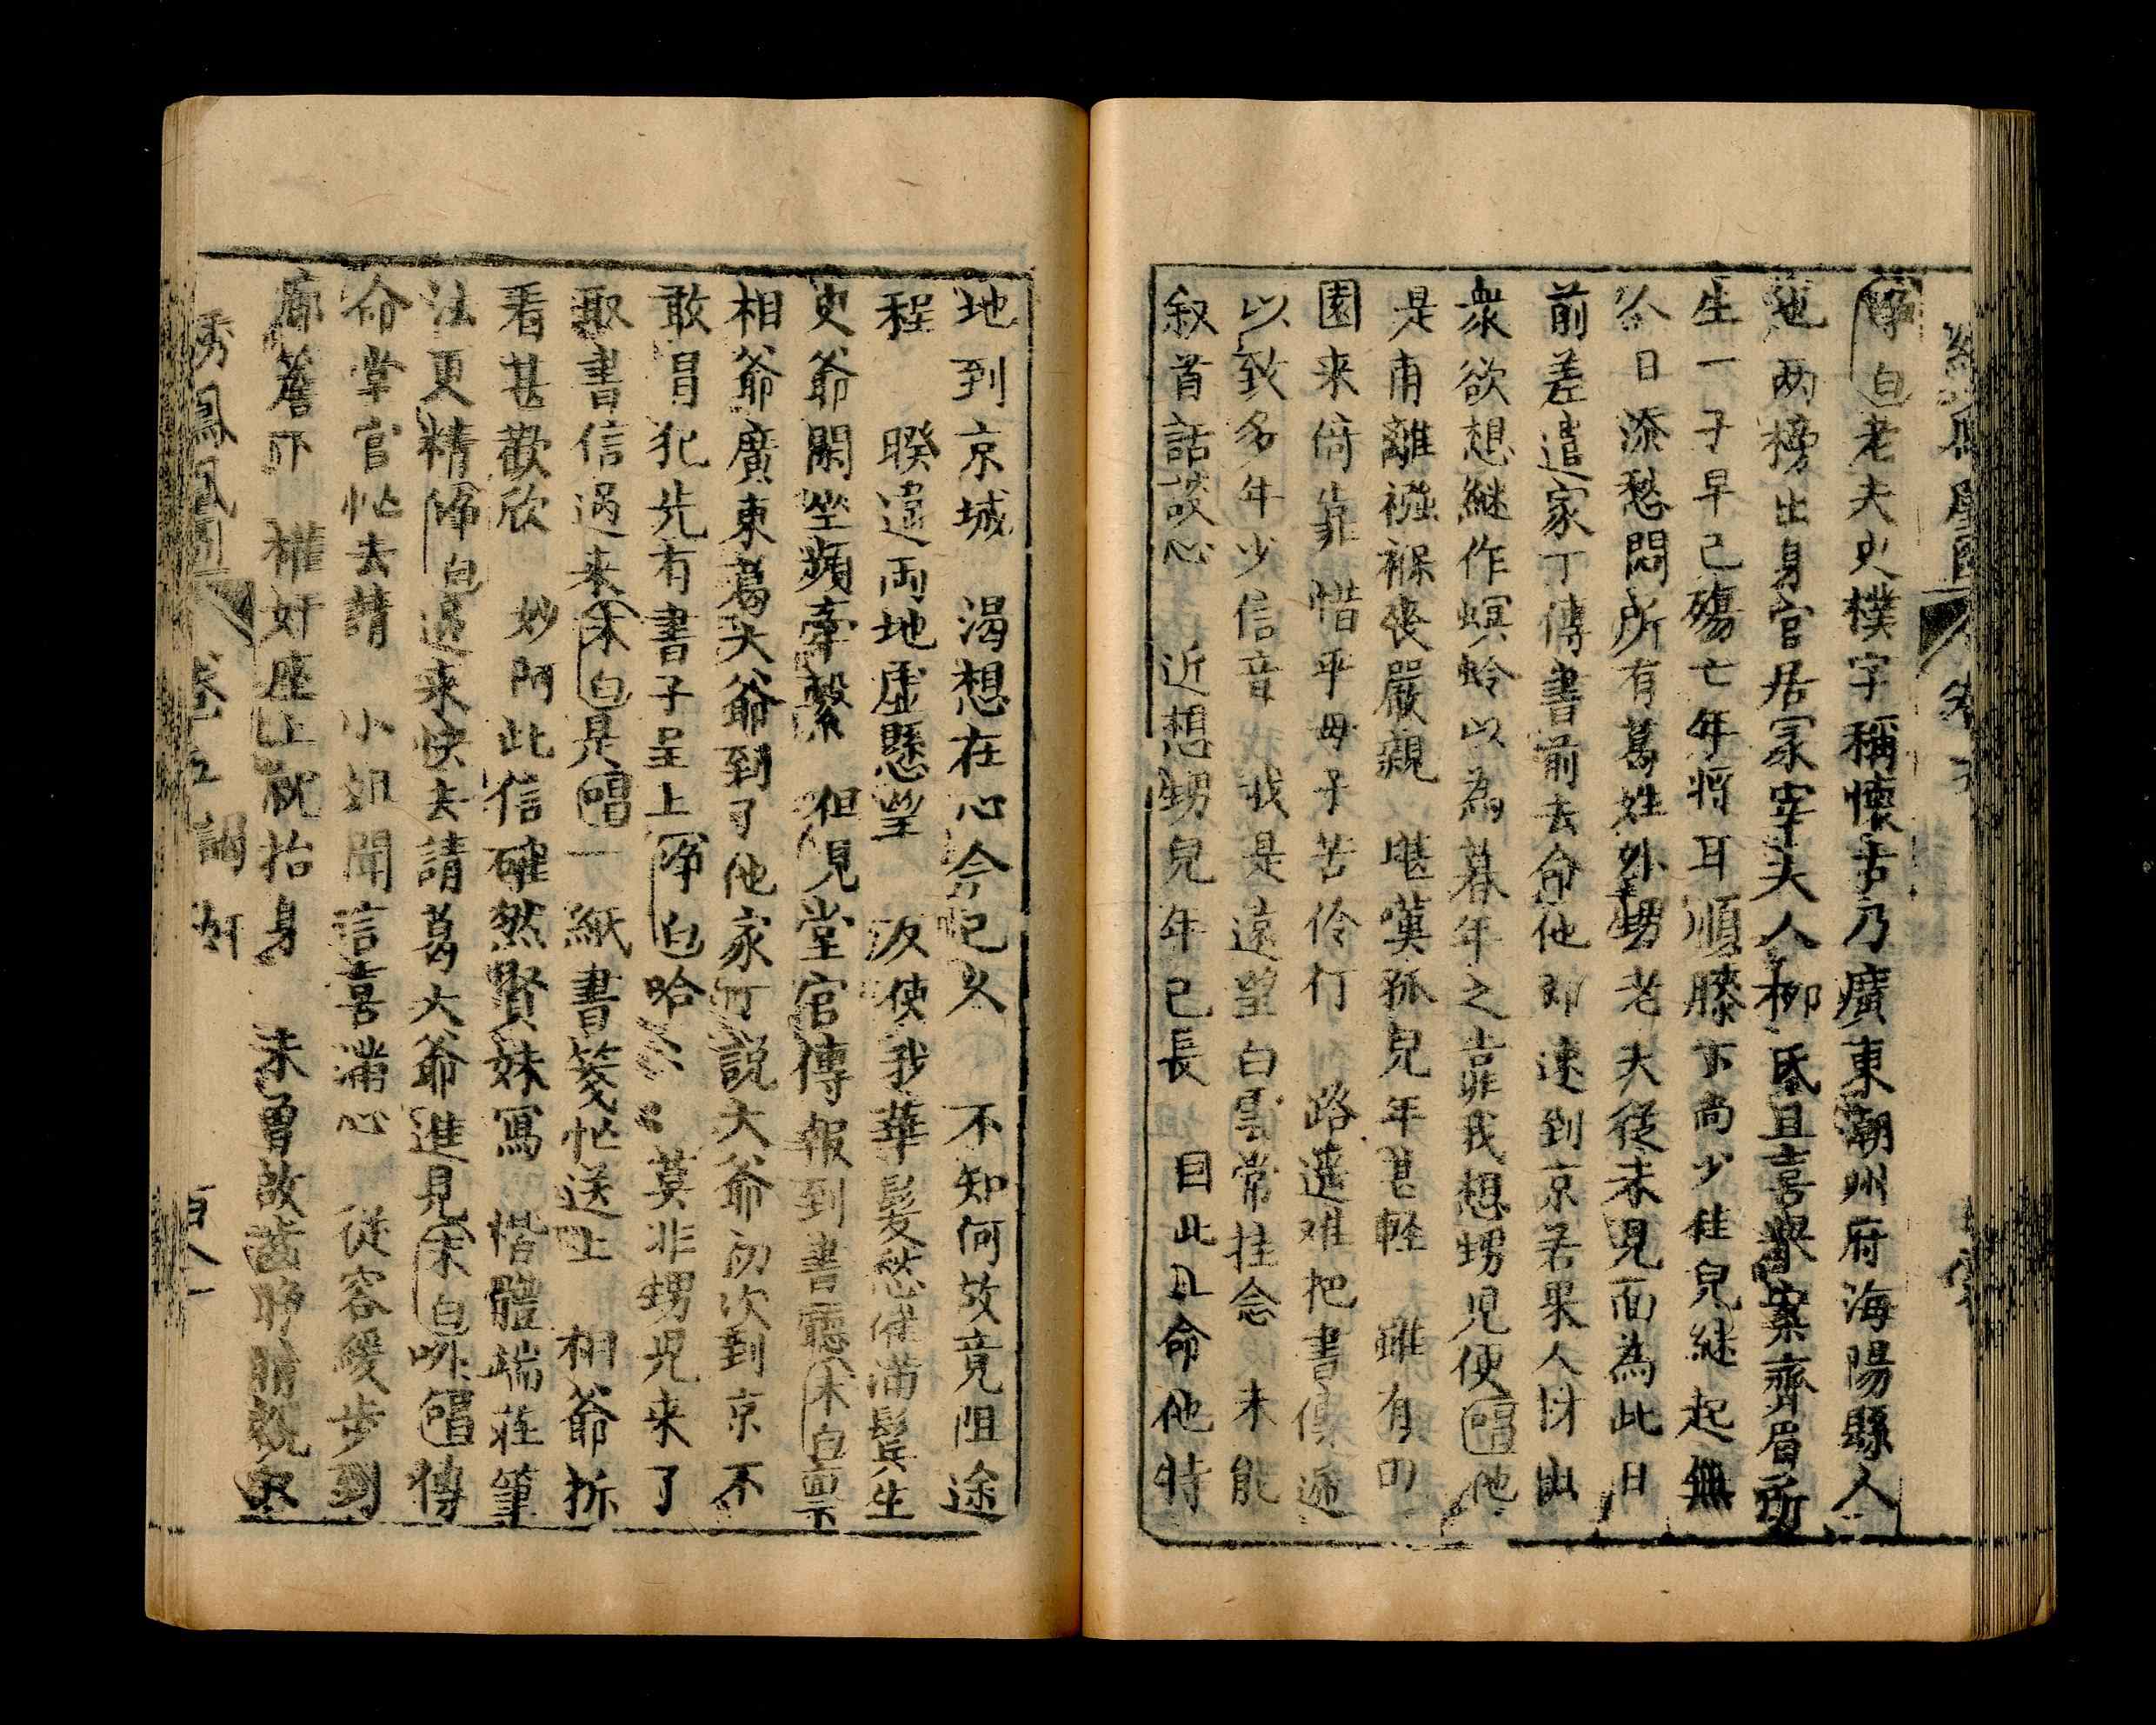 白老夫史樸字稱懷古乃廣東潮州府海陽縣人
也両榜出身官居冢宰夫人柳氏且喜舉案齊眉所
生一子早已殤亡年將耳順膝下尚少桂兒继起無
今日添愁悶所有葛姓外甥老夫從未見面為此日
前差遣家丁傳書前去命他即速到京若果人材出
衆欲想継作螟蛉以為暮年之靠我想甥児便唱他
是甫離襁褓喪嚴親 嘆孤兒年甚輕 雖有田
園来倚靠 惜乎母子苦伶仃 路遥难把書傳遞
以致多年少信音 我是遠望白雲常挂念 未能
叙首話談心 近想甥兒年已長 因此上命他特
地到京城 渴想在心今已久 不知何故竟阻途
程 暌違両地虚懸望 反使我華髮愁催滿鬓生
史爺閑坐頻牽繫 但見堂官傳報到書廳末白禀
相爺廣東葛大爺到了他家丁説大爺初次到京不
敢冒犯先有書子呈上净白哈 莫非甥児来了
取書信過来末白是唱一紙書箋忙送上 相爺拆
看甚歡欣 妙阿此信確然賢妹寫 楷體端莊筆
法更精净白過来快去請葛大爺進見末白 唱傳
命堂官忙去請 小姐聞言喜滿心 從容緩步到
廊簷下 權奸座上就抬身 未曾啟齒
綉鳳凰 卷五 調奸